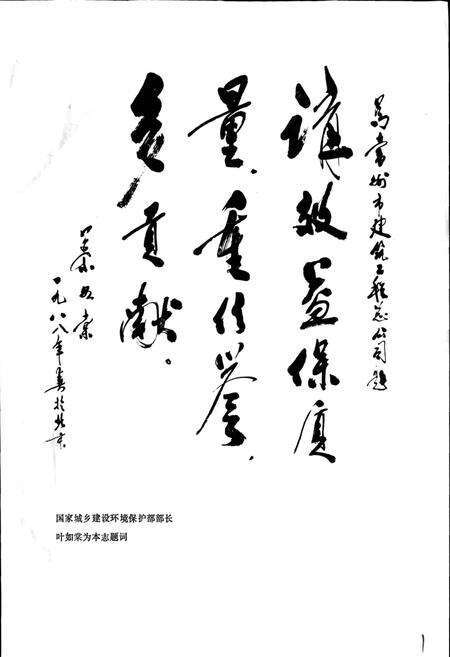 为常州市建筑工程总公司题
讲效益保质
量、重信誉、
多贡献。
葉如棠
一九八八年春於北京
国家城乡建设环境保护部部长
叶如棠为本志题词